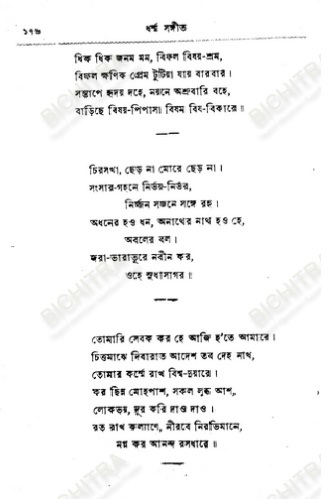 ১৭৬
ধর্ম্ম সঙ্গীত
ধিক্ ধিক্ জনম মম, বিফল বিষয়-শ্রম,
বিফল ক্ষণিক প্রেম টুটিয়া যায় বারবার।
সন্তাপে হৃদয় দহে, নয়নে অশ্রুবারি বহে,
বাড়িছে বিষয়-পিপাসা বিষম বিষ-বিকারে॥
চিরসখা, ছেড় না মোরে ছেড় না।
সংসার-গহনে নির্ভয়-নির্ভর,
নির্জ্জন সজনে সঙ্গে রহ।
অধনের হও ধন, অনাথের নাথ হও হে,
অবলের বল।
জরা-ভারাতুরে নবীন কর,
ওহে সুধাসাগর॥
তোমারি সেবক কর হে আজি হ’তে আমারে।
চিত্তমাঝে দিবারাত আদেশ তব দেহ নাথ,
তোমার কর্ম্মে রাখ বিশ্ব-দুয়ারে॥
কর ছিন্ন মোহপাশ, সকল লুব্ধ আশ,
লোকভয়, দূর করি দাও দাও।
রত রাখ কল্যাণে, নীরবে নিরভিমানে,
মগ্ন কর আনন্দ রসধারে॥
BICHITRA